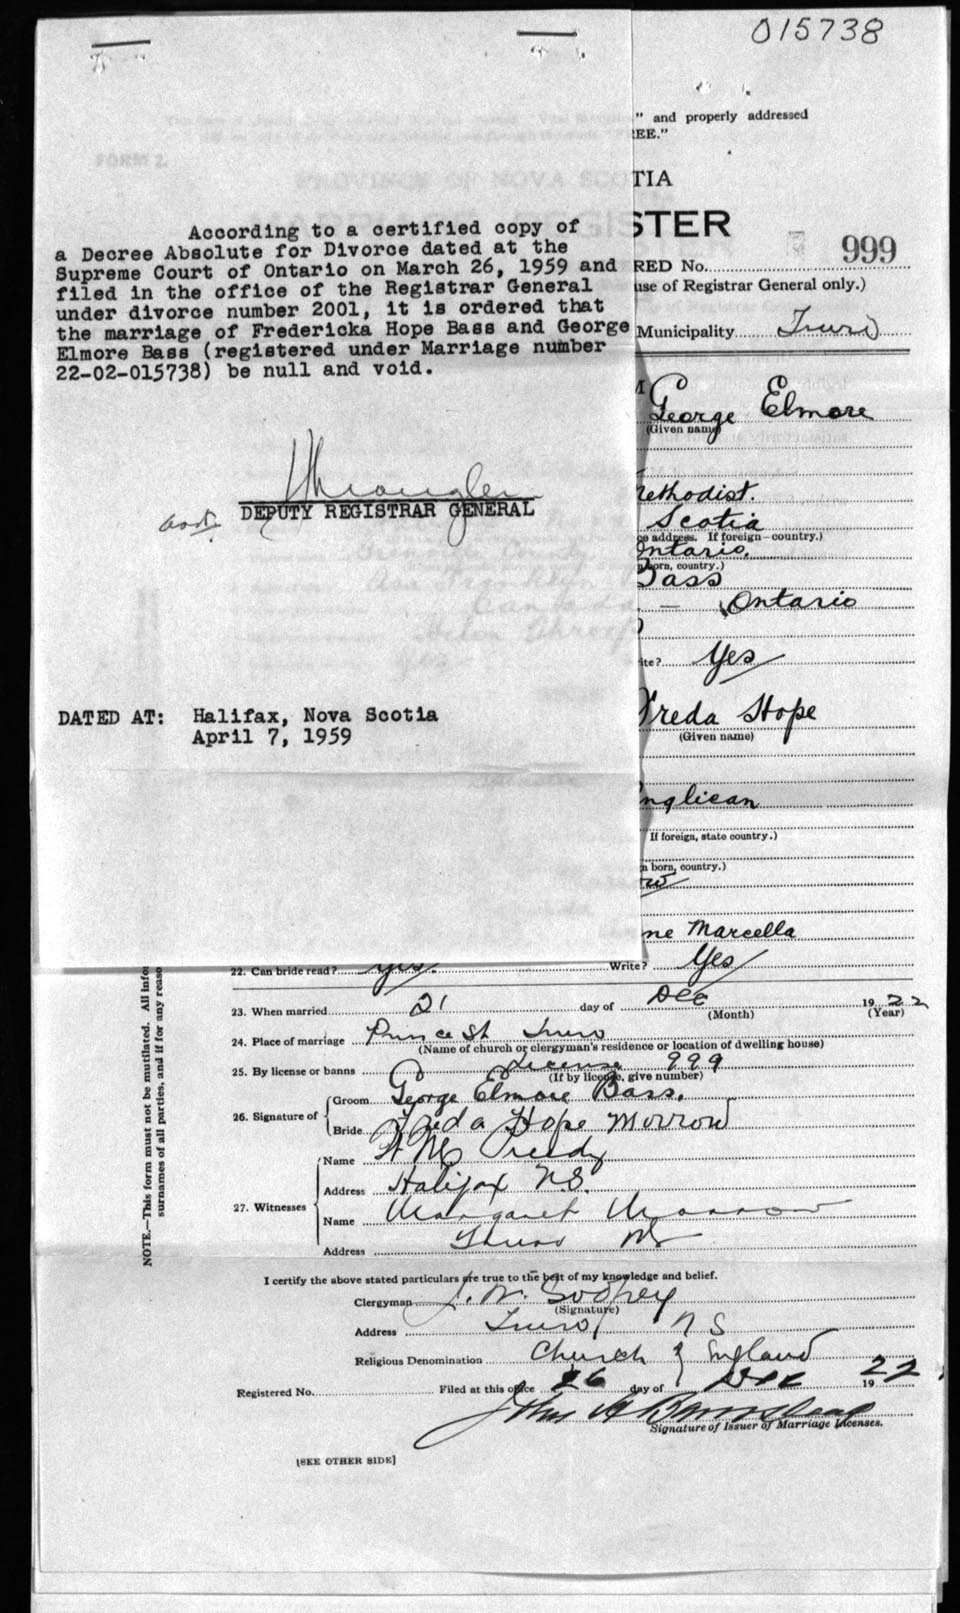 015738
" and properly addressed
EE."
TIA
STER
999
RED No.
use of Registrar General only.)
Municipality Truro
According to a certified copy of
a Decree Absolute for Divorce dated at the
Supreme Court of Ontario on March 26, 1959 and
filed in the office of the Registrar General
under divorce number 2001, it is ordered that
the marriage of Fredericka Hope Bass and George
Elmore Bass (registered under Marriage number
22-02-015738) be null and void.
DEPUTY REGISTRAR GENERAL
DATED AT: Halifax, Nova Scotia
April 7, 1959
George Elmore
(Given name)
Methodist.
Scotia
ce address. If foreign—country.)
Ontario.
born, country.)
Bass
— Ontario
ite? Yes
Freda Hope
(Given name)
Anglican
If foreign, state country.)
n born, country.)
ne Marcella
22. Can bride read? Yes. Write? Yes
23. When married 21 day of Dec 1922
(Month) (Year)
24. Place of marriage Prince St Truro
(Name of church or clergyman's residence or location of dwelling house)
25. By license or banns License 999
(If by license, give number)
26. Signature of Groom George Elmore Bass.
Bride Freda Hope Morrow
27. Witnesses
Name
Address Halifax N.S.
Name Margaret Morrow
Address Truro NS
I certify the above stated particulars are true to the best of my knowledge and belief.
Clergyman
(Signature)
Address Truro NS
Religious Denomination Church of England
Registered No. Filed at this office 26 day of Dec 1922
Signature of Issuer of Marriage Licenses.
[SEE OTHER SIDE]
NOTE.—This form must not be mutilated. All infor
surnames of all parties, and if for any reaso